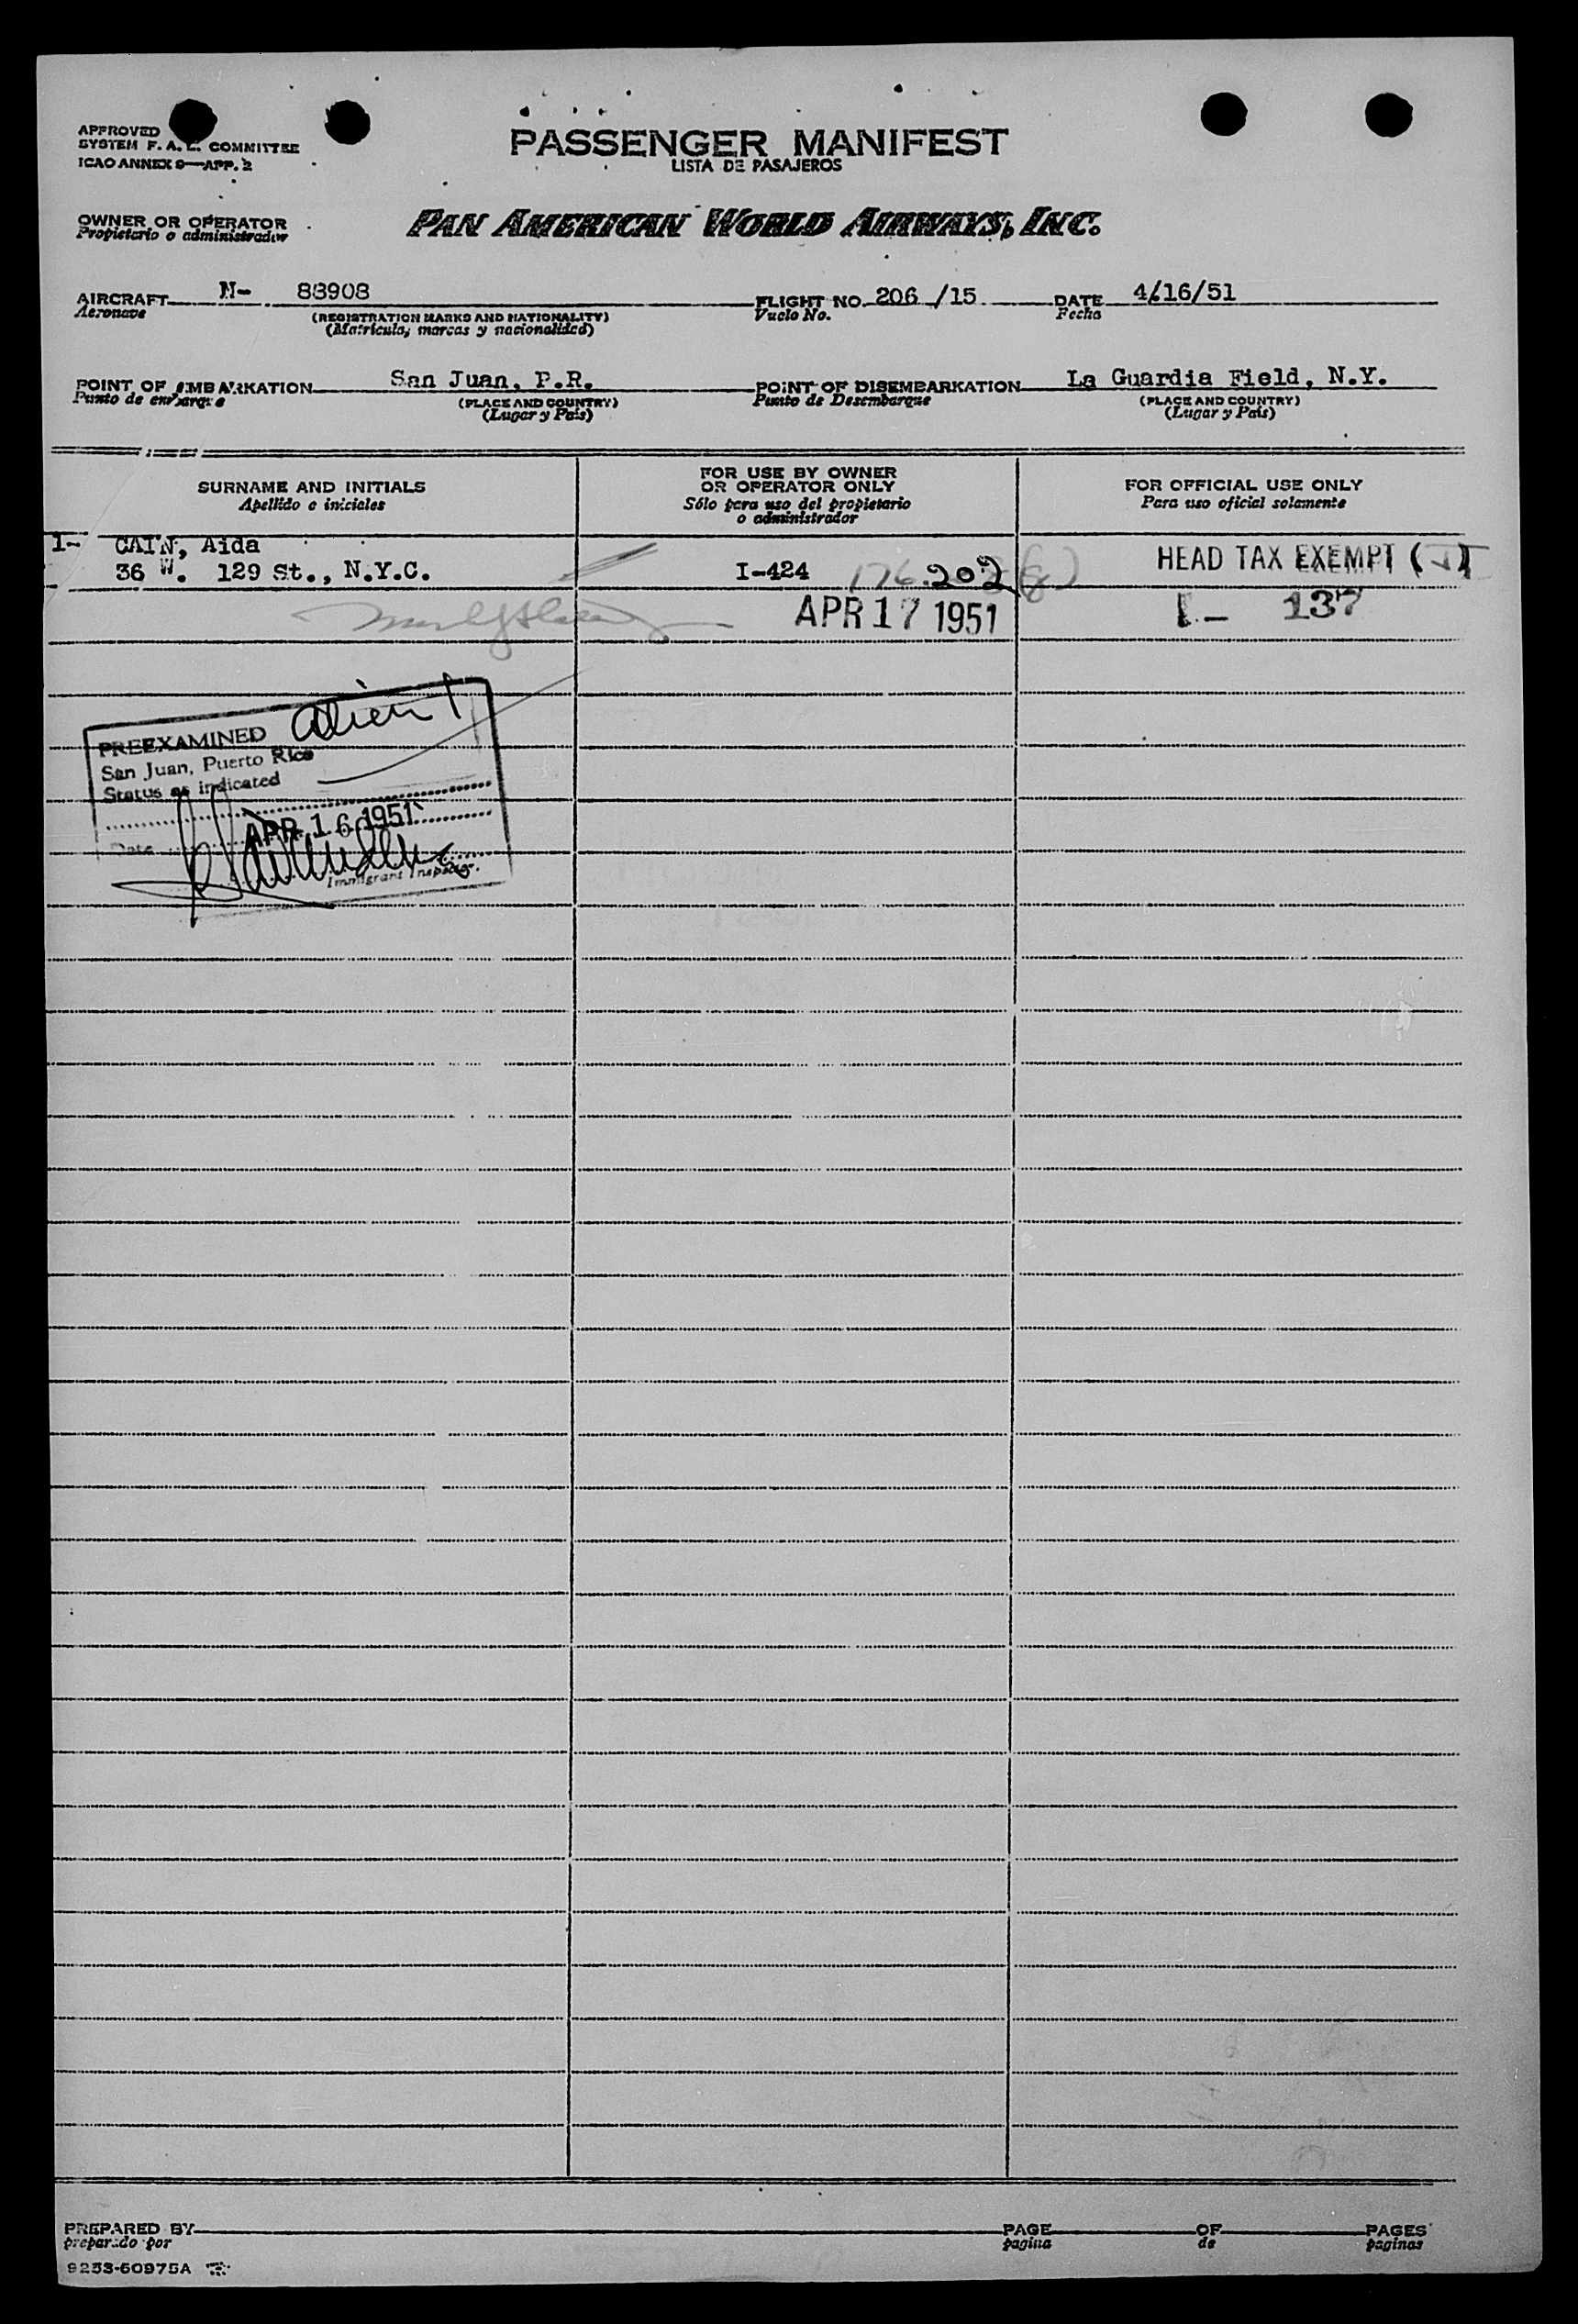 APPROVED
SYSTEM F. A. L. COMMITTEE
ICAO ANNEX 9—APP. 2
PASSENGER MANIFEST
LISTA DE PASAJEROS
OWNER OR OPERATOR
Propietario o administrador
PAN AMERICAN WORLD AIRWAYS, INC.
AIRCRAFT N- 88908 FLIGHT NO. 206 /15 DATE 4/16/51
Aeronave (REGISTRATION MARKS AND NATIONALITY) Vuelo No. Fecha
(Matrícula, marcas y nacionalidad)
POINT OF EMBARKATION San Juan, P.R. POINT OF DISEMBARKATION La Guardia Field, N.Y.
Punto de embarque (PLACE AND COUNTRY) Punto de Desembarque (PLACE AND COUNTRY)
(Lugar y País) (Lugar y País)
SURNAME AND INITIALS
Apellido e iniciales
FOR USE BY OWNER
OR OPERATOR ONLY
Sólo para uso del propietario
o administrador
FOR OFFICIAL USE ONLY
Para uso oficial solamente
1- CAIN, Aida
36 W. 129 St., N.Y.C. I-424 176.202 HEAD TAX EXEMPT
APR 17 1951 I - 137
PREEXAMINED alien 1
San Juan, Puerto Rico
Status as indicated
Date APR 16 1951
Immigrant Inspector.
PREPARED BY PAGE OF PAGES
preparado por pagina de paginas
9253-60975A